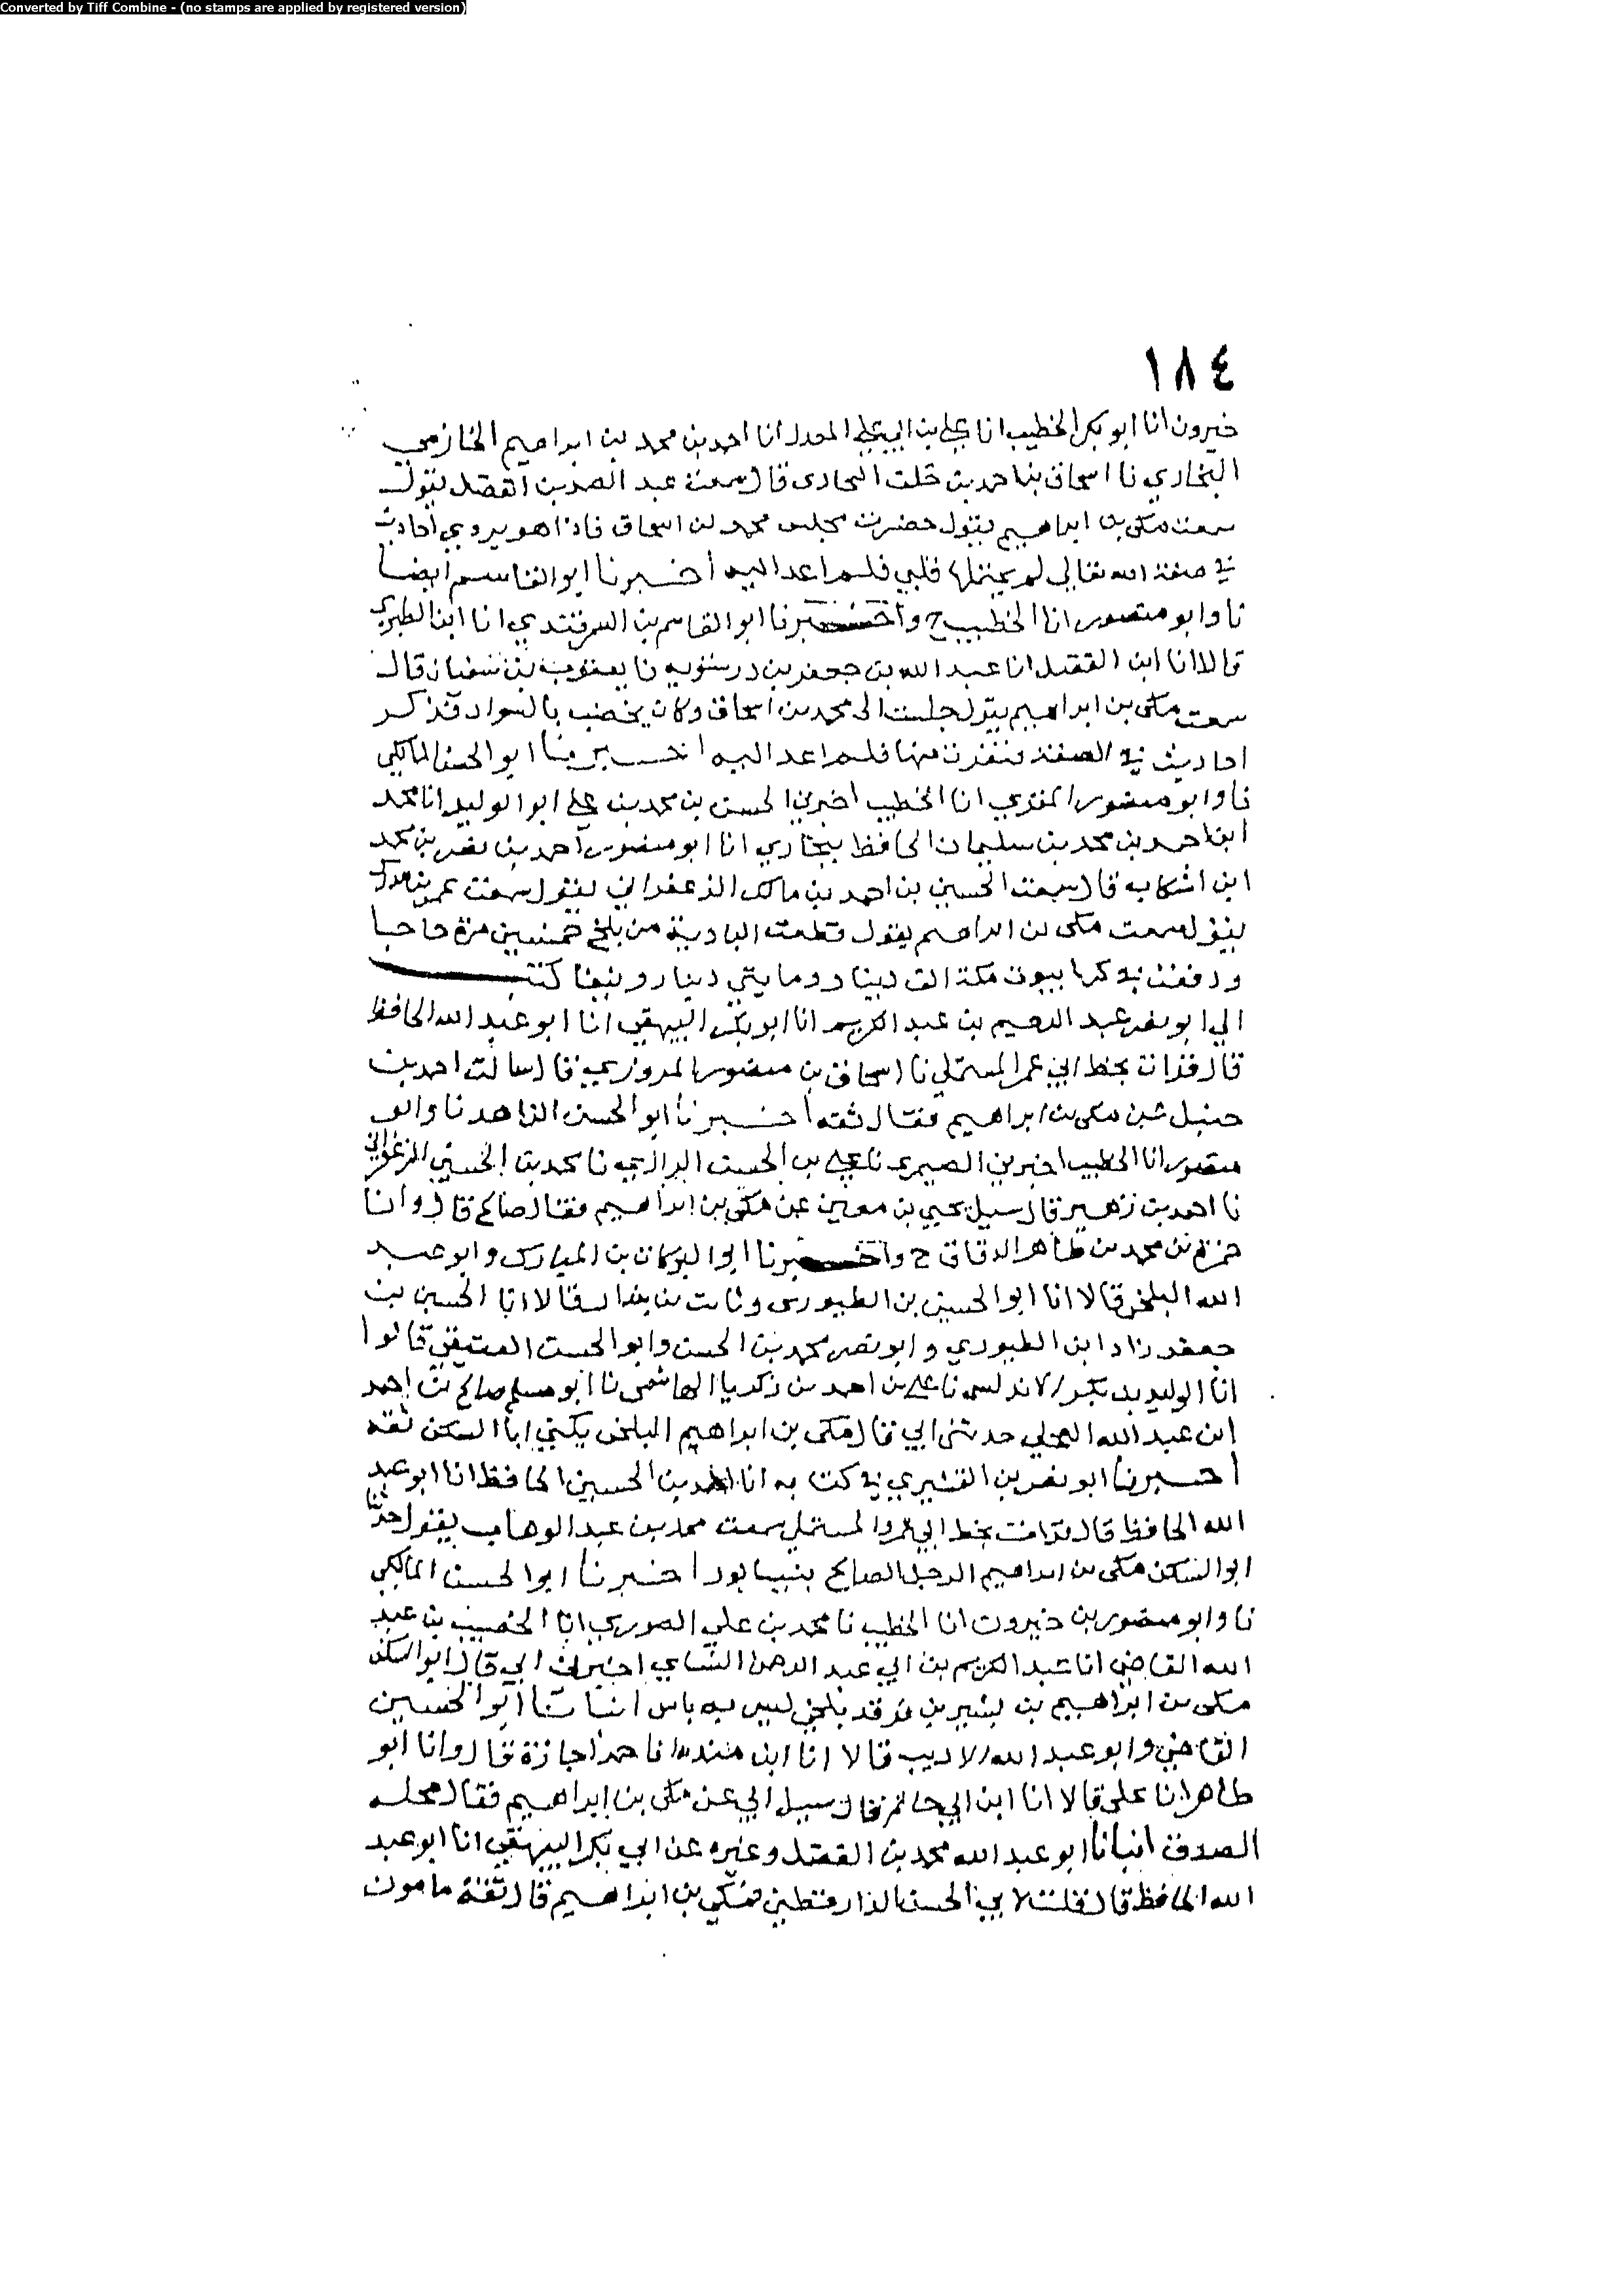 Converted by Tiff Combine - (no stamps are applied by registered version)
١٨٤
خيرون انا ابو بكر الخطيب انا علي بن ابي علي المعدل انا احمد بن محمد بن ابراهيم الخازمي
البخاري نا اسحاق بن احمد بن خلف البخاري قال سمعت عبد الصمد بن الفضل يقول
سمعت مكي بن ابراهيم يقول حضرت مجلس محمد بن اسحاق فاذا هو يروي احاديث
في صفة الله تعالى لم يحتملها قلبي فلم اعد اليه اخبرنا ابو القاسم ايضا
نا وابو منصور انا الخطيب ح واخبرنا ابو القاسم بن السمرقندي انا ابن الطبري
قالا انا ابن الفضل انا عبد الله بن جعفر بن درستويه نا يعقوب بن سفيان قال
سمعت مكي بن ابراهيم يقول جلست الى محمد بن اسحاق وكان يخضب بالسواد فذكر
احاديث في الصفة فنفرت منها فلم اعد اليه اخبرنا ابو الحسن المالكي
نا وابو منصور المقري انا الخطيب اخبرني الحسن بن محمد بن علي ابو الوليد انا محمد
ابن احمد بن محمد بن سليمان الحافظ ببخاري انا ابو منصور احمد بن نصر بن محمد
ابن اشكاب قال سمعت الحسين بن احمد بن مالك الزعفراني يقول سمعت عمر بن مدرك
يقول سمعت مكي بن ابراهيم يقول قطعت البادية من بلخ خمسين مرة حاجا
ودفعت في كرا بيوت مكة الف دينار ومايتي دينار ونيفا كتب
الي ابو نصر عبد الرحيم بن عبد الكريم انا ابو بكر البيهقي انا ابو عبد الله الحافظ
قال قرات بخط ابي عمر المستملي نا اسحاق بن منصور المروزي قال سالت احمد بن
حنبل عن مكي بن ابراهيم فقال ثقه اخبرنا ابو الحسن الزاهد نا وابو
منصور انا الخطيب اخبرني الصيمري نا علي بن الحسن الرازي نا محمد بن الحسين الزعفراني
نا احمد بن زهير قال سيل يحيي بن معين عن مكي بن ابراهيم فقال صالح قال وانا
حمزة بن محمد بن طاهر الدقاق ح واخبرنا ابو البركات بن المبارك وابو عبد
الله البلخي قالا انا ابو الحسين بن الطيوري وثابت بن بندار قالا انا الحسين بن
جعفر زاد ابن الطيوري وابو نصر محمد بن الحسن وابو الحسن العتيقي قالوا
انا الوليد بن بكر الاندلسي نا علي بن احمد بن زكريا الهاشمي نا ابو مسلم صالح بن احمد
ابن عبد الله العجلي حدثني ابي قال مكي بن ابراهيم البلخي يكني ابا السكن ثقه
اخبرنا ابو نصر بن القشيري في كتابه انا احمد بن الحسين الحافظ انا ابو عبد
الله الحافظ قال قرات بخط ابي عمرو المستملي سمعت محمد بن عبد الوهاب يقول حدثنا
ابو السكن مكي بن ابراهيم الرجل الصالح بنيسابور اخبرنا ابو الحسن المالكي
نا وابو منصور بن خيرون انا الخطيب نا محمد بن علي الصوري انا الخصيب بن عبد
الله القاضي انا عبد الكريم بن ابي عبد الرحمن النساي اخبرني ابي قال ابو السكن
مكي بن ابراهيم بن بشير بن فرقد بلخي ليس به باس انبانا ابو الحسين
القاضي وابو عبد الله الاديب قالا انا ابن منده انا حمد اجازة قال وانا ابو
طاهر انا علي قالا انا ابن ابي حاتم قال سيل ابي عن مكي بن ابراهيم فقال محله
الصدق انبانا ابو عبد الله محمد بن الفضل وغيره عن ابي بكر البيهقي انا ابو عبد
الله الحافظ قال قلت لابي الحسن الدارقطني فمكي بن ابراهيم قال ثقة مامون